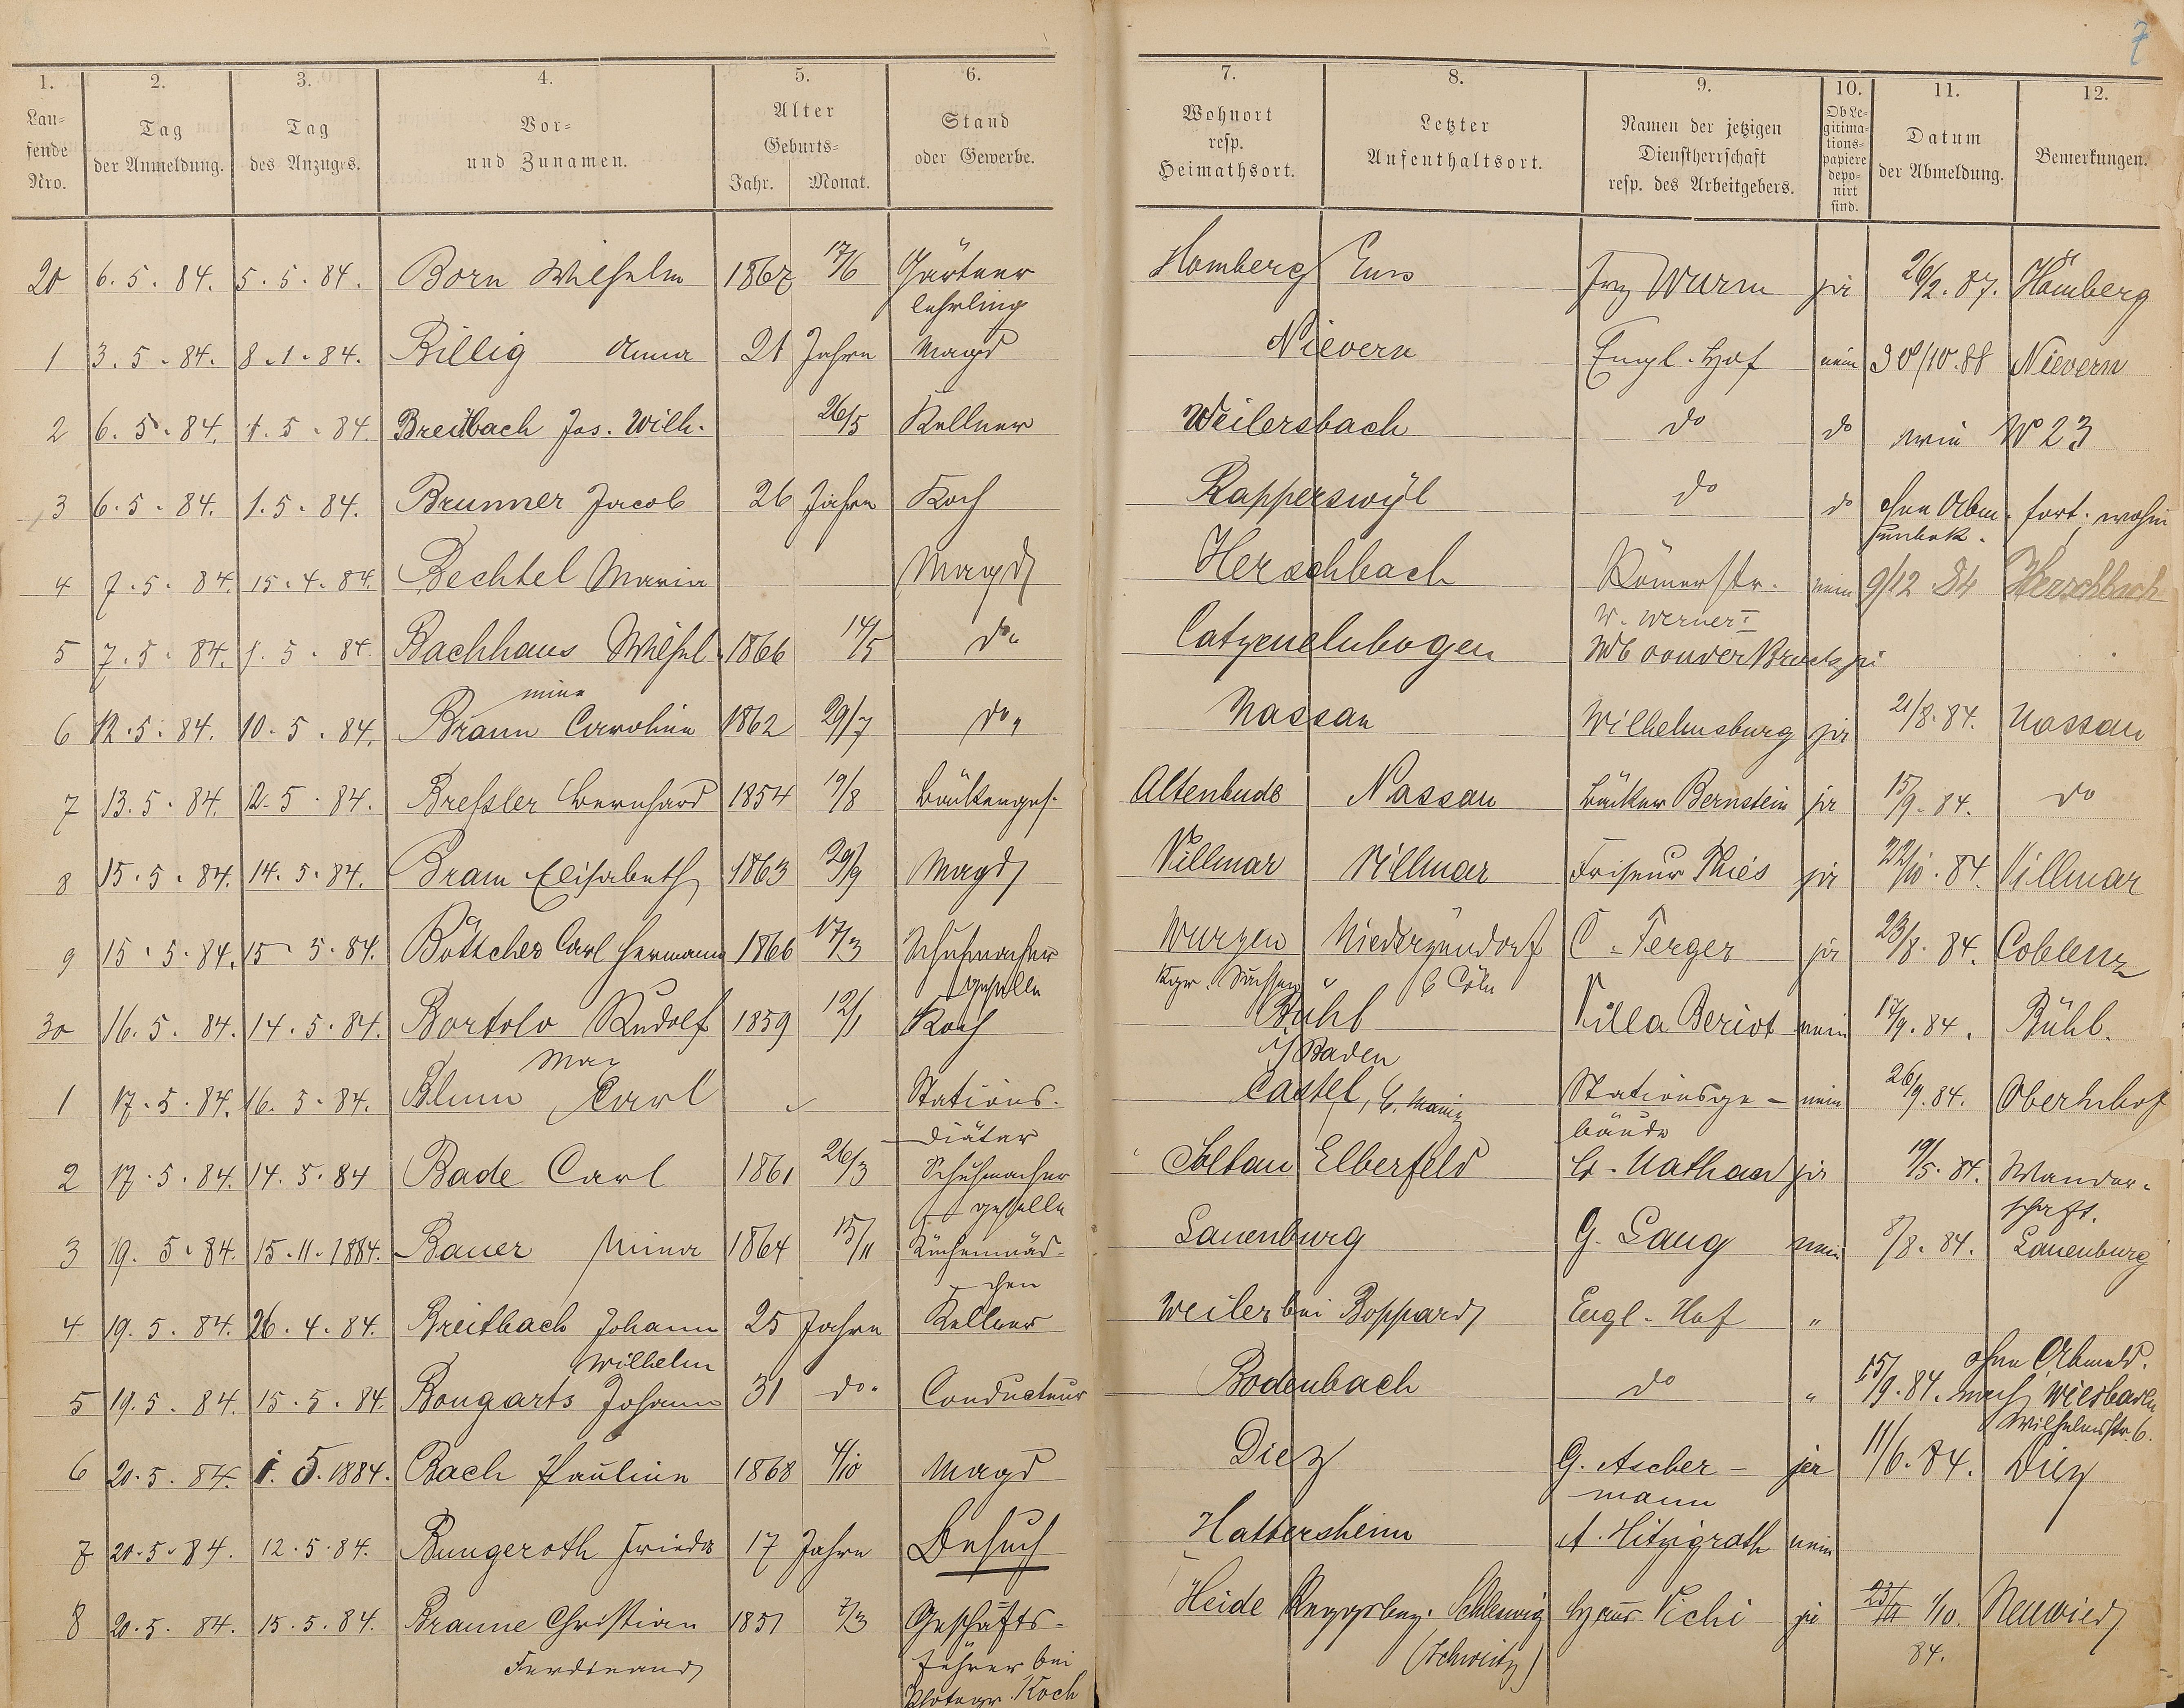 7
1. 2. 3. 4. 5. 6. 7. 8. 9. 10. 11. 12.
Laufende Nro. Tag der Anmeldung. Tag des Anzuges. Vor- und Zunamen. Alter Geburts- Jahr. Monat. Stand oder Gewerbe. Wohnort resp. Heimathsort. Letzter Aufenthaltsort. Namen der jetzigen Dienstherrschaft resp. des Arbeitgebers. Ob Legitimationspapiere deponirt sind. Datum der Abmeldung. Bemerkungen.
20 6. 5. 84. 5. 5. 84. Born Wilhelm 1867 17/6 Gärtner Homberg Ems Wurm ja 26/2. 87. Homberg
lehrling
1 3. 5. 84. 8. 1. 84. Billig Anna 21 Jahre Magd Nievern Engl. Hof nein 30/10. 88 Nievern
2 6. 5. 84. 1. 5. 84. Breitbach Jos. Wilh. 26/5 Kellner Weilersbach do do No 23
3 6. 5. 84. 1. 5. 84. Brunner Jacob 26 Jahre Koch Rapperswyl do do ohne Abm. fort. wohin
unbek.
4 7. 5. 84. 15. 4. 84. Bechtel Maria Magd Herschbach Römerstr. nein 9/12 84 Herschbach
W. Werner I
5 7. 5. 84. 1. 5. 84. Bachhaus Wilhel- 1866 14/5 do. Catzenelnbogen ja
mine
6 12. 5. 84. 10. 5. 84. Braun Caroline 1862 29/7 do. Nassau Wilhelmsburg ja 21/8. 84. Nassau
7 13. 5. 84. 12. 5. 84. Breßler Bernhard 1854 19/8 Bäckerges. Altenbude Nassau Bäcker Bernstein ja 15/9. 84. do
8 15. 5. 84. 14. 5. 84. Bram Elisabeth 1863 29/9 Magd Villmar Villmar Friseur Thies ja 22/10. 84. Villmar
9 15. 5. 84. 15. 5. 84. Böttcher Carl Hermann 1866 17/3 Schuhmacher Wurzen Niederzündorf C. Ferger ja 23/8. 84. Coblenz
geselle Kgr. Sachsen b Cöln
30 16. 5. 84. 14. 5. 84. Bortolo Rudolf 1859 12/1 Koch Bühl Villa Beriot nein 17/9. 84. Bühl.
Max i/ Baden
1 17. 5. 84. 16. 5. 84. Blum Carl Stations- Castel, b. Mainz Stationsge- nein 26/9. 84. Oberhof
Diätar bäude
2 17. 5. 84. 14. 5. 84 Bade Carl 1861 26/3 Schuhmacher Soltau Elberfeld Nathan ja 19/5. 84. Wander-
geselle schaft.
3 19. 5. 84. 15. 11. 1884. Bauer Mina 1864 15/11 Küchenmäd- Lauenburg G. Lang nein 8/8. 84. Lauenburg
chen
4 19. 5. 84. 26. 4. 84. Breitbach Johann 25 Jahre Kellner Weiler bei Boppard Engl. Hof "
Wilhelm ohne Abmeld.
5 19. 5. 84. 15. 5. 84. Bongarts Johann 31 do. Conducteur Bodenbach do " 15/9. 84. nach Wiesbaden
Wilhelmstr. 6.
6 20. 5. 84. 1. 5. 1884. Bach Pauline 1868 4/10 Magd Diez G. Ascher- ja 11/6. 84. Diez
mann
7 20. 5. 84. 12. 5. 84. Bungeroth Frieda 17 Jahre Besuch Hattersheim A. Hitzigrath nein
8 20. 5. 84. 15. 5. 84. Braune Christian 1851 7/3 Geschäfts- Heide Schleswig Haus Vichi ja 1/10. Neuwied
Ferdinand führer bei (Schweitz) 84.
Photogr. Koch